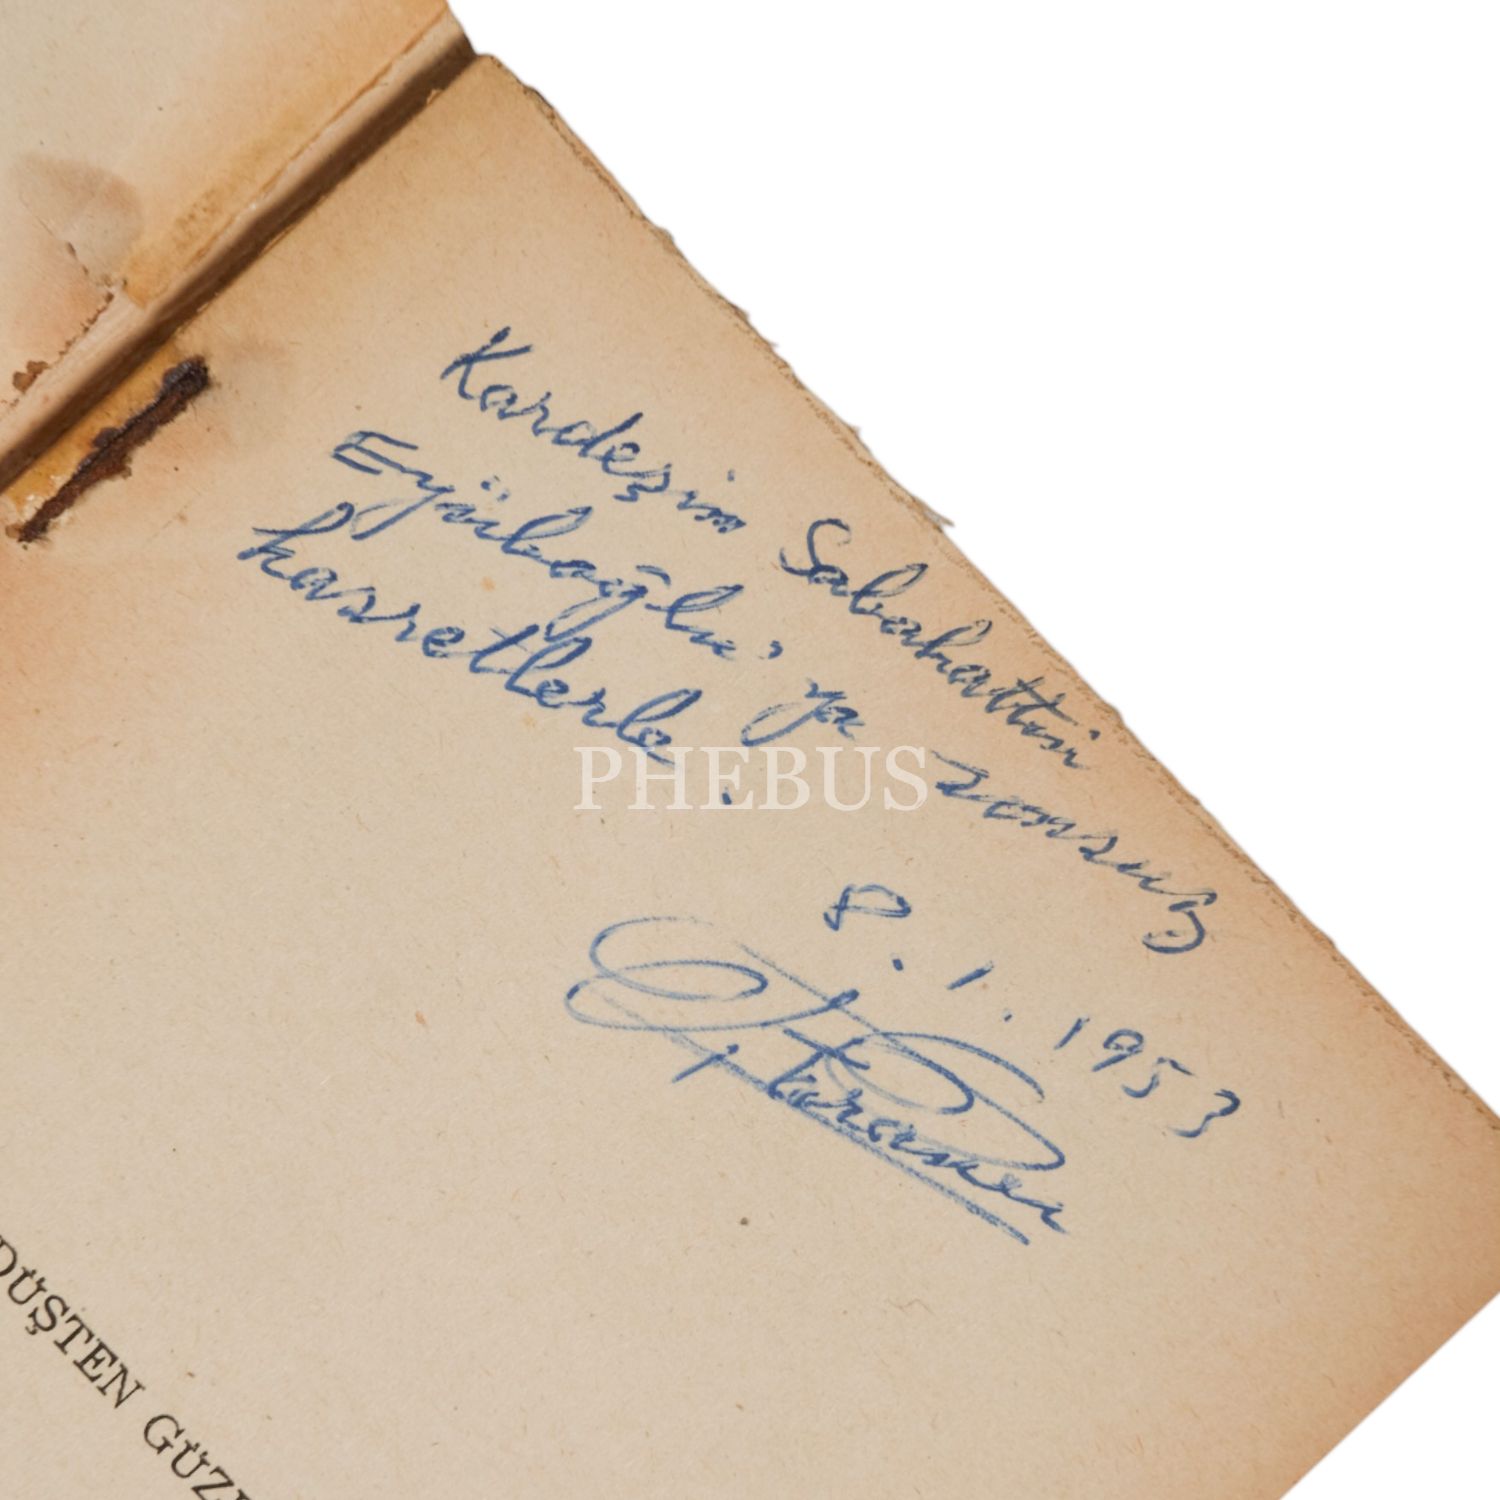 Kardeşim Sabahattin
Eyüboğlu'ya sonsuz
hasretlerle.
8.1.1953
PHEBUS
DÜŞTEN GÜZ